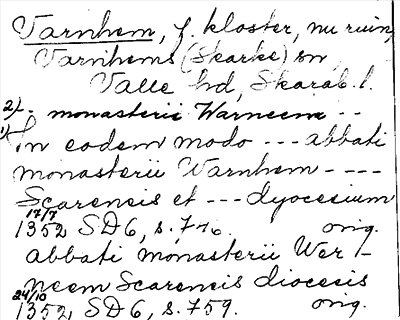 Varnhem, f. kloster, nu ruin,
Varnhems (Skarke) sn
Valle hd, Skarab. l.
2) - monasterii Warneem - -
1) In eodem modo - - - abbati
monasterii Warnhem - - - -
Scarensis et - - - dyocesium
17/7
1352 SD 6, s. 746. orig.
abbati monasterii Wer /-
neem Scarensis diocesis
24/10
1352 SD 6, s. 759. orig.